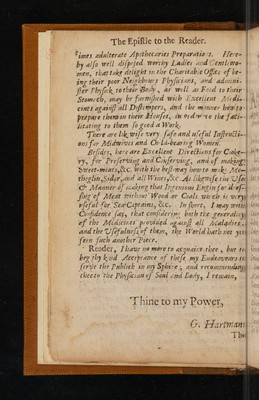 The Epistle to the Reader.
times adulterate Apothecaries Preparations. Here-
by also well disposed worthy Ladies and Gentlewo-
men, that take delight in the Charitable Office of be-
ing their poor Neighbours Physicians, and admini-
ster Physick to their Body, as well as Food to their
Stomach, may be furnished with Excellent Medi-
cines against all Distempers, and the manner how to
prepare them in their Houses, in order to the faci-
litating to them so good a Work.
There are likewise very safe and useful Instructi-
ons for Midwives and Child-bearing Women.
Besides, here are Excellent Directions for Cooke-
ry, for Preserving and Conserving, and of making
Sweet-meats, &c. with the best way how to make Me-
theglin, Sidar, and all Wines, &c. As likewise the Use
& Manner of making that Ingenious Engin for dres-
sing of Meat without Wood or Coals which is very
useful for Sea-Captains, &c. In short, I may with
Confidence say, that considering both the generality
of the Medicines provided against all
and the Usefulness of them, the World hath not yet
seen such another Piece.
Reader, I have no more to acquaint thee, but to
beg thy kind Acceptance of these my Endeavours to
serve the Publick in my Sphere; and recommending
thee to the Physician of Soul and Body, I remain,
Thine to my Power,
G. Hartman
The